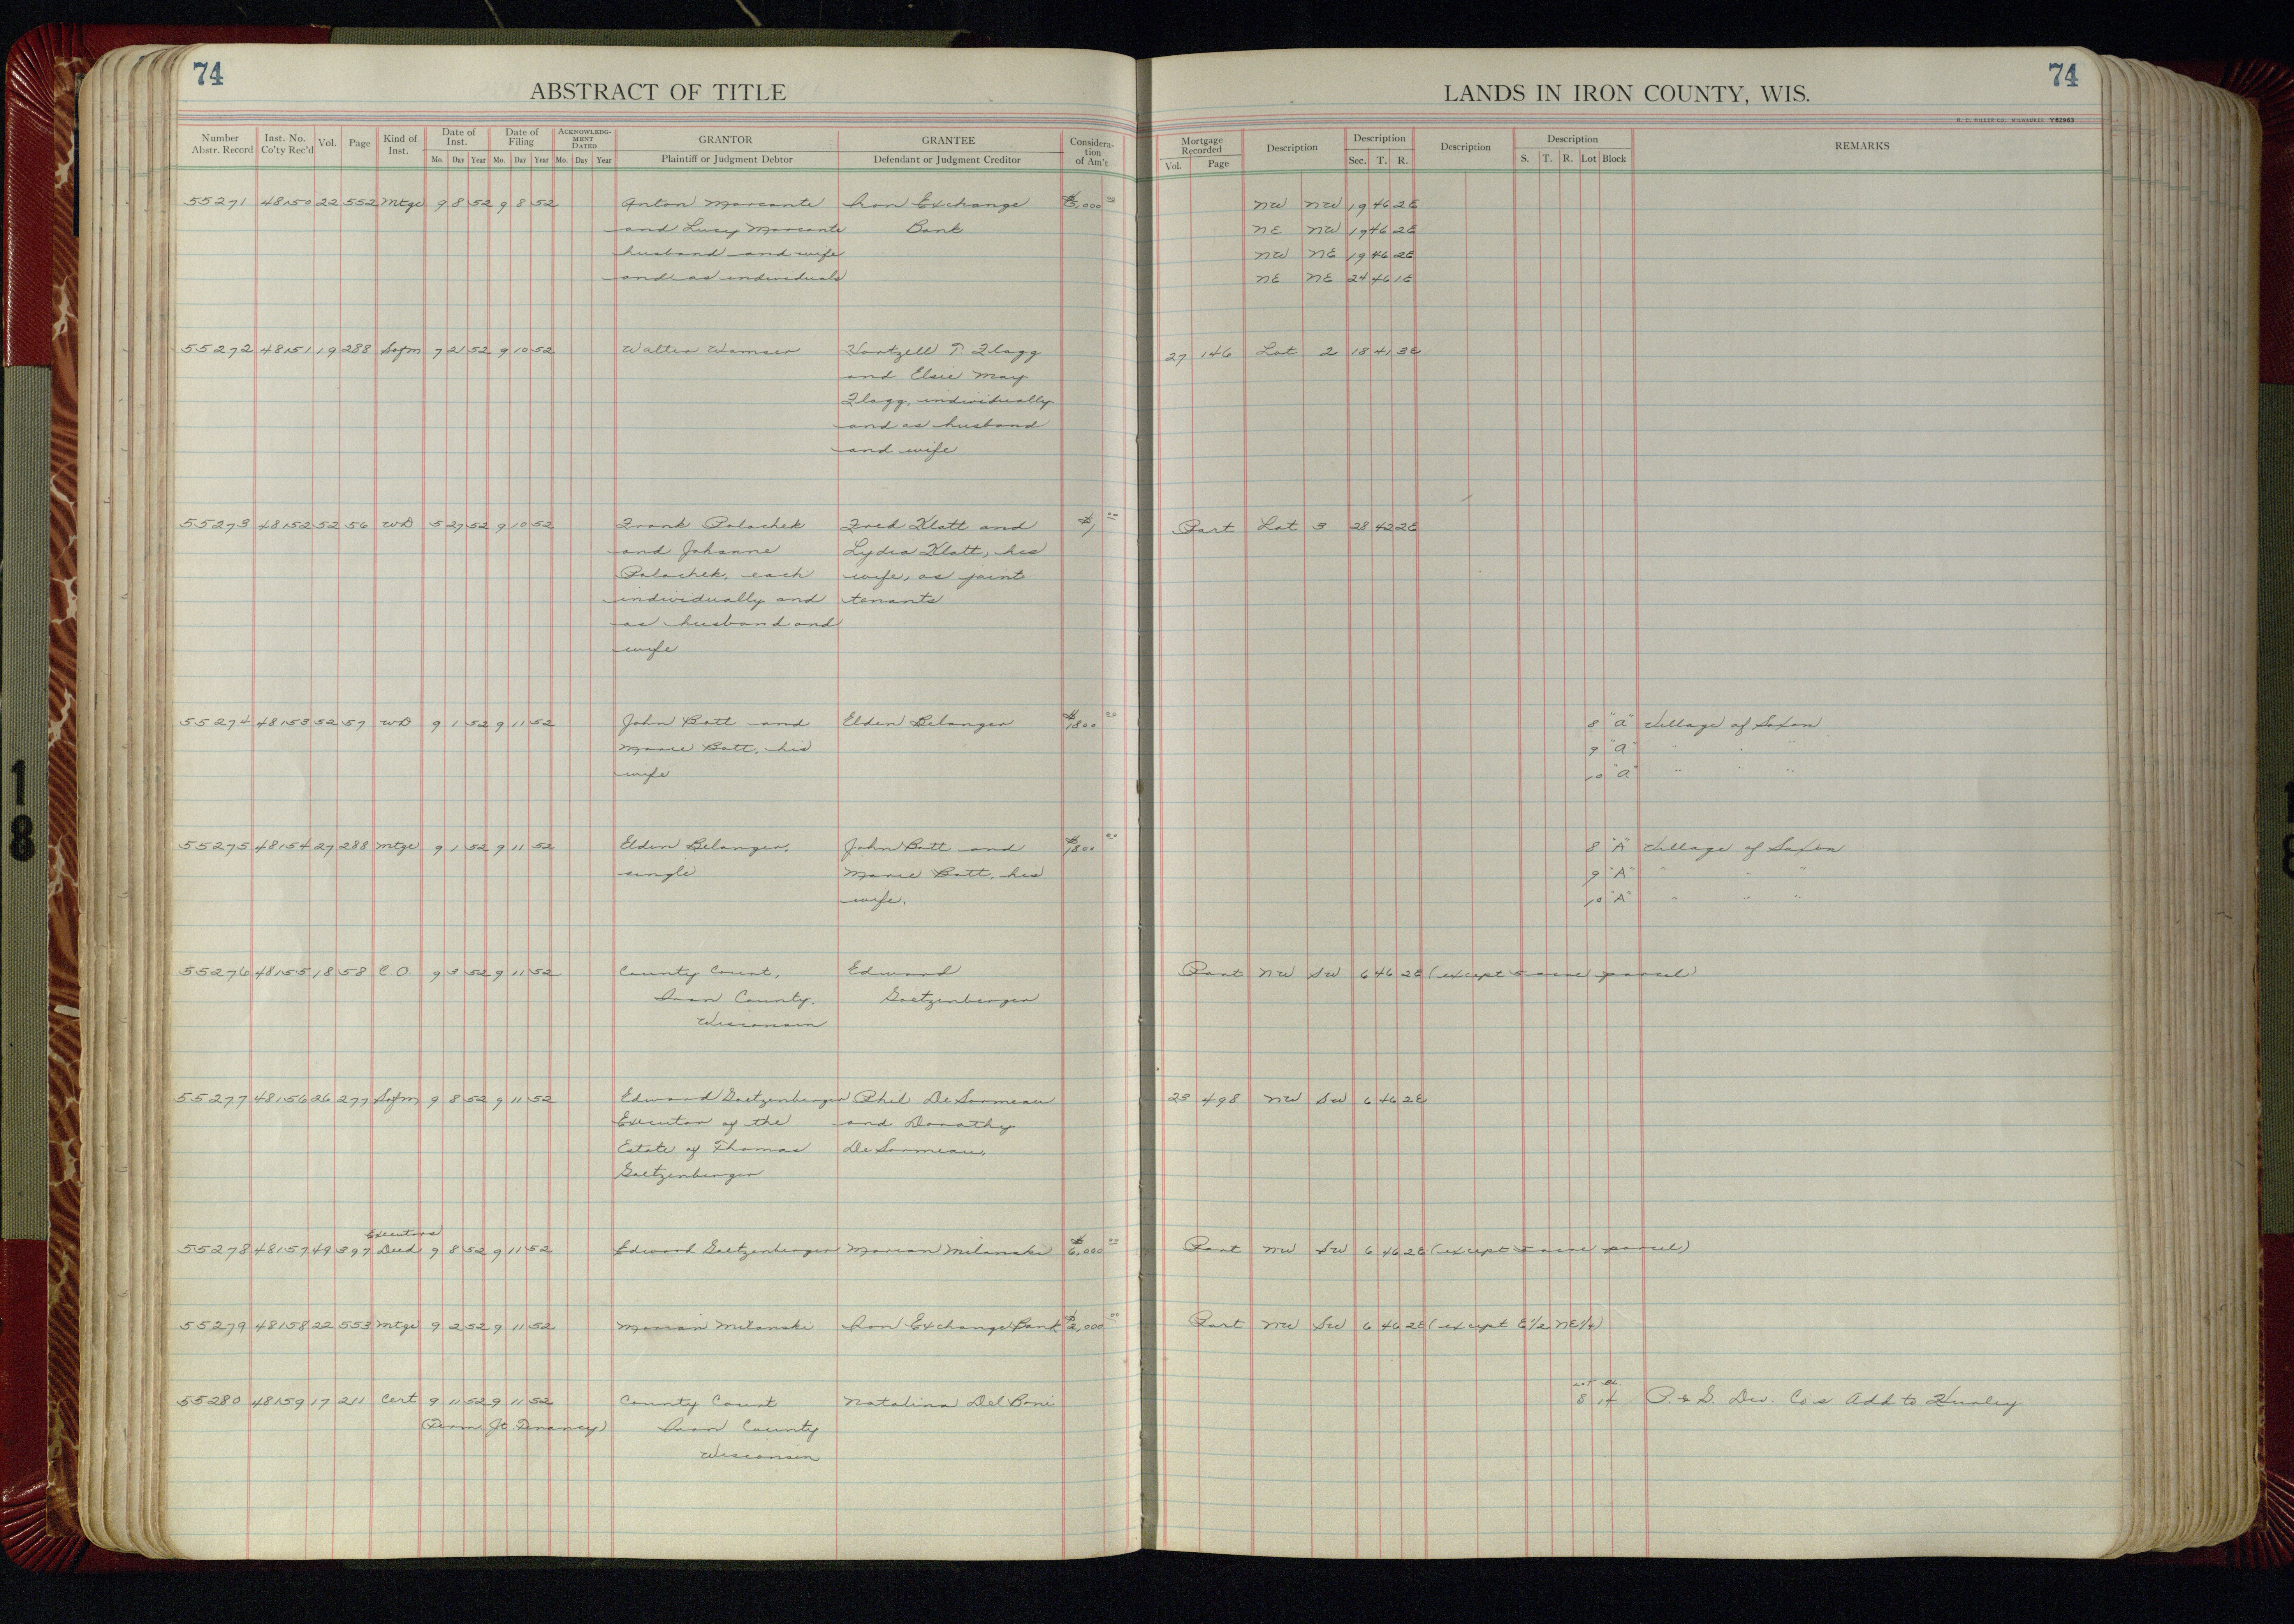 74
ABSTRACT OF TITLE
LANDS IN IRON COUNTY, WIS.
74
Number Abstr. Record Inst. No. Co'ty Rec'd Vol. Page Kind of Inst. Date of Inst. Mo. Day Year Date of Filing Mo. Day Year ACKNOWLEDGMENT DATED Mo. Day Year GRANTOR Plaintiff or Judgment Debtor GRANTEE Defendant or Judgment Creditor Consideration of Am't
Mortgage Recorded Vol. Page Description Description Sec. T. R. Description Description S. T. R. Lot Block REMARKS
H. C. MILLER CO. MILWAUKEE Y62963
55271 48150 22 552 Mtge 9 8 52 9 8 52 Anton Marcante Iron Exchange $ ,000 00 NW NW 19 46 2E
and Lucy Marcante Bank NE NW 19 46 2E
husband and wife NW NE 19 46 2E
and as individuals NE NE 24 46 1E
55272 48151 19 288 Sofm 7 21 52 9 10 52 Walter Wamser Hartzell T. Flagg 27 146 Lot 2 18 41 3E
and Elsie May
Flagg, individually
and as husband
and wife
55273 48152 52 56 WD 5 27 52 9 10 52 Frank Polachek Fred Klatt and $1 00 Part Lot 3 28 42 2E
and Johanne Lydia Klatt, his
Polachek, each wife, as joint
individually and tenants
as husband and
wife
55274 48153 52 57 WD 9 1 52 9 11 52 John Batt and Elden Belanger $1800 00 8 "A" Village of Saxon
Marie Batt, his 9 "A" " " "
wife 10 "A" " " "
55275 48154 27 288 Mtge 9 1 52 9 11 52 Elden Belanger, John Batt and $1800 00 8 "A" Village of Saxon
single Marie Batt, his 9 "A" " " "
wife. 10 "A" " " "
55276 48155 18 58 C.O. 9 3 52 9 11 52 County Court, Edward Part NW SW 6 46 2E (except 5 acre parcel)
Iron County, Goetzenberger
Wisconsin
55277 48156 26 277 Sofm 9 8 52 9 11 52 Edward Goetzenberger Phil DeSormeau 23 498 NW SW 6 46 2E
Executor of the and Dorothy
Estate of Thomas DeSormeau,
Goetzenberger
Executors
55278 48157 49 397 Deed 9 8 52 9 11 52 Edward Goetzenberger Marian Milanski $6,000 00 Part NW SW 6 46 2E (except 5 acre parcel)
55279 48158 22 553 Mtge 9 2 52 9 11 52 Marian Milanski Iron Exchange Bank $2,000 00 Part NW SW 6 46 2E (except E1/2 NE1/4)
Lot Bl.
55280 48159 17 211 Cert 9 11 52 9 11 52 County Court Natalina DelBoni 8 14 P. & G. Dev. Co's Add to Hurley
(Term. Jt. Tenancy) Iron County
Wisconsin
18